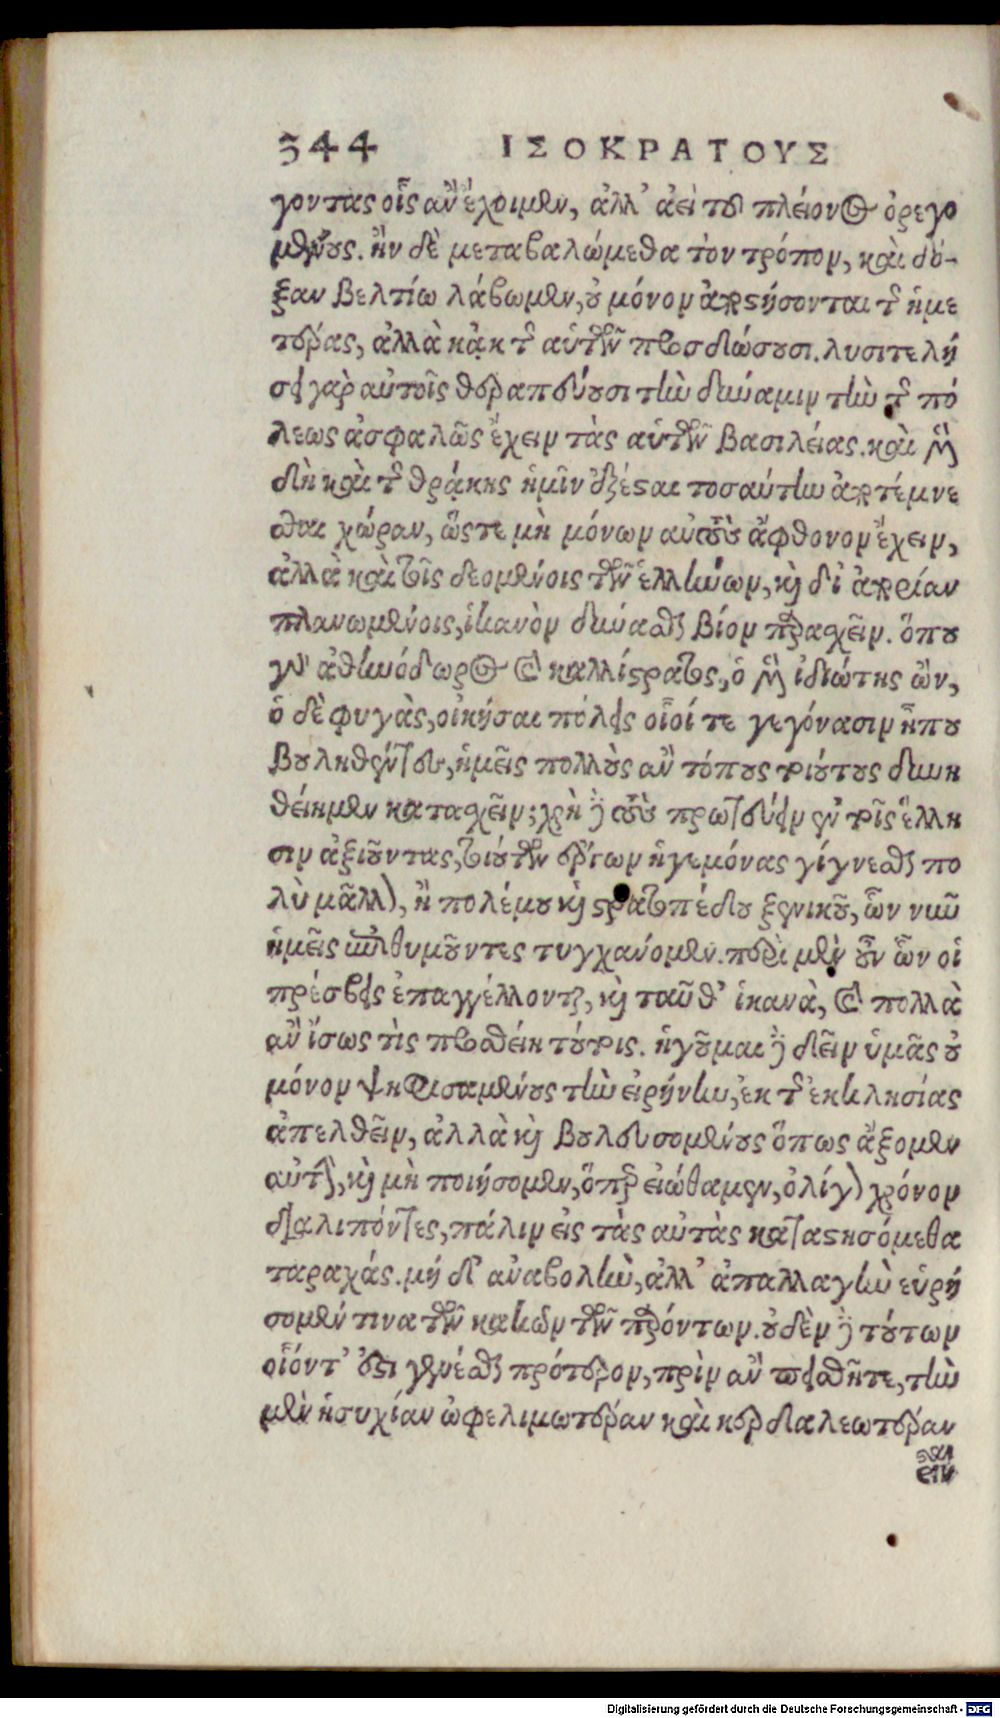 344 ΙΣΟΚΡΑΤΟΥΣ
γοντας οἷς ἂν ἔχοιμεν, ἀλλ' ἀεὶ τοῦ πλείονος ὀρεγο
μένους. ἢν δὲ μεταβαλώμεθα τὸν τρόπον, καὶ δό-
ξαν βελτίω λάβωμεν, οὐ μόνον ἀποστήσονται τῆς ἡμε
τέρας, ἀλλὰ κἀκ τῆς αὑτῶν προσδώσουσι. λυσιτελή
σει γὰρ αὐτοῖς θεραπεύουσι τὴν δύναμιν τὴν τῆς πό
λεως ἀσφαλῶς ἔχειν τὰς αὑτῶν βασιλείας. καὶ μὲν
δὴ καὶ τῆς θράκης ἡμῖν ἐξέσται τοσαύτην ἀποτέμνε
σθαι χώραν, ὥστε μὴ μόνων αὐτοὺς ἄφθονον ἔχειν,
ἀλλὰ καὶ τοῖς δεομένοις τῶν ἑλλήνων, καὶ δι' ἀπορίαν
πλανωμένοις, ἱκανὸν δύνασθαι βίον παρασχεῖν. ὅπου
γὰρ ἀθηνόδωρος καὶ καλλίστρατος, ὁ μὲν ἰδιώτης ὢν,
ὁ δὲ φυγὰς, οἰκῆσαι πόλεις οἷοί τε γεγόνασιν ἦπου
βουληθέντες, ἡμεῖς πολλοὺς ἂν τόπους τοιούτους δυνη
θείημεν κατασχεῖν; χρὴ δὲ τοὺς πρωτεύειν ἐν τοῖς ἕλλη
σιν ἀξιοῦντας, τοιούτων ἔργων ἡγεμόνας γίγνεσθαι πο
λὺ μᾶλλον, ἢ πολέμου καὶ στρατοπέδου ξενικοῦ, ὧν νῦν
ἡμεῖς ἐπιθυμοῦντες τυγχάνομεν. περὶ μὲν οὖν ὧν οἱ
πρέσβεις ἐπαγγέλλονται, καὶ ταῦθ' ἱκανὰ, καὶ πολλὰ
ἂν ἴσως τὶς προσθείη τούτοις. ἡγοῦμαι δὲ δεῖν ὑμᾶς οὐ
μόνον ψηφισαμένους τὴν εἰρήνην, ἐκ τῆς ἐκκλησίας
ἀπελθεῖν, ἀλλὰ καὶ βουλευσομένους ὅπως ἄξομεν
αὐτὴν, καὶ μὴ ποιήσομεν, ὅπερ εἰώθαμεν, ὀλίγον χρόνον
διαλιπόντες, πάλιν εἰς τὰς αὐτὰς καταστησόμεθα
ταραχάς. μή δ' ἀναβολὴν, ἀλλ' ἀπαλλαγὴν εὑρή
σομέν τινα τῶν κακῶν τῶν παρόντων. οὐδὲν δὲ τούτων
οἷόντ' ἐστι γενέσθαι πρότερον, πρὶν ἂν πεισθῆτε, τὴν
μὲν ἡσυχίαν ὠφελιμωτέραν καὶ κερδαλεωτέραν
εἶναι
Digitalisierung gefördert durch die Deutsche Forschungsgemeinschaft - DFG